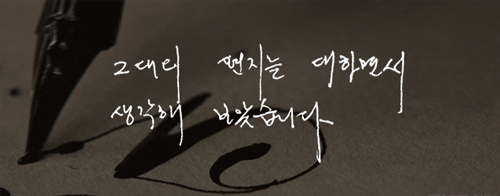 그대의 편지를 대하면서
생각해 보았습니다